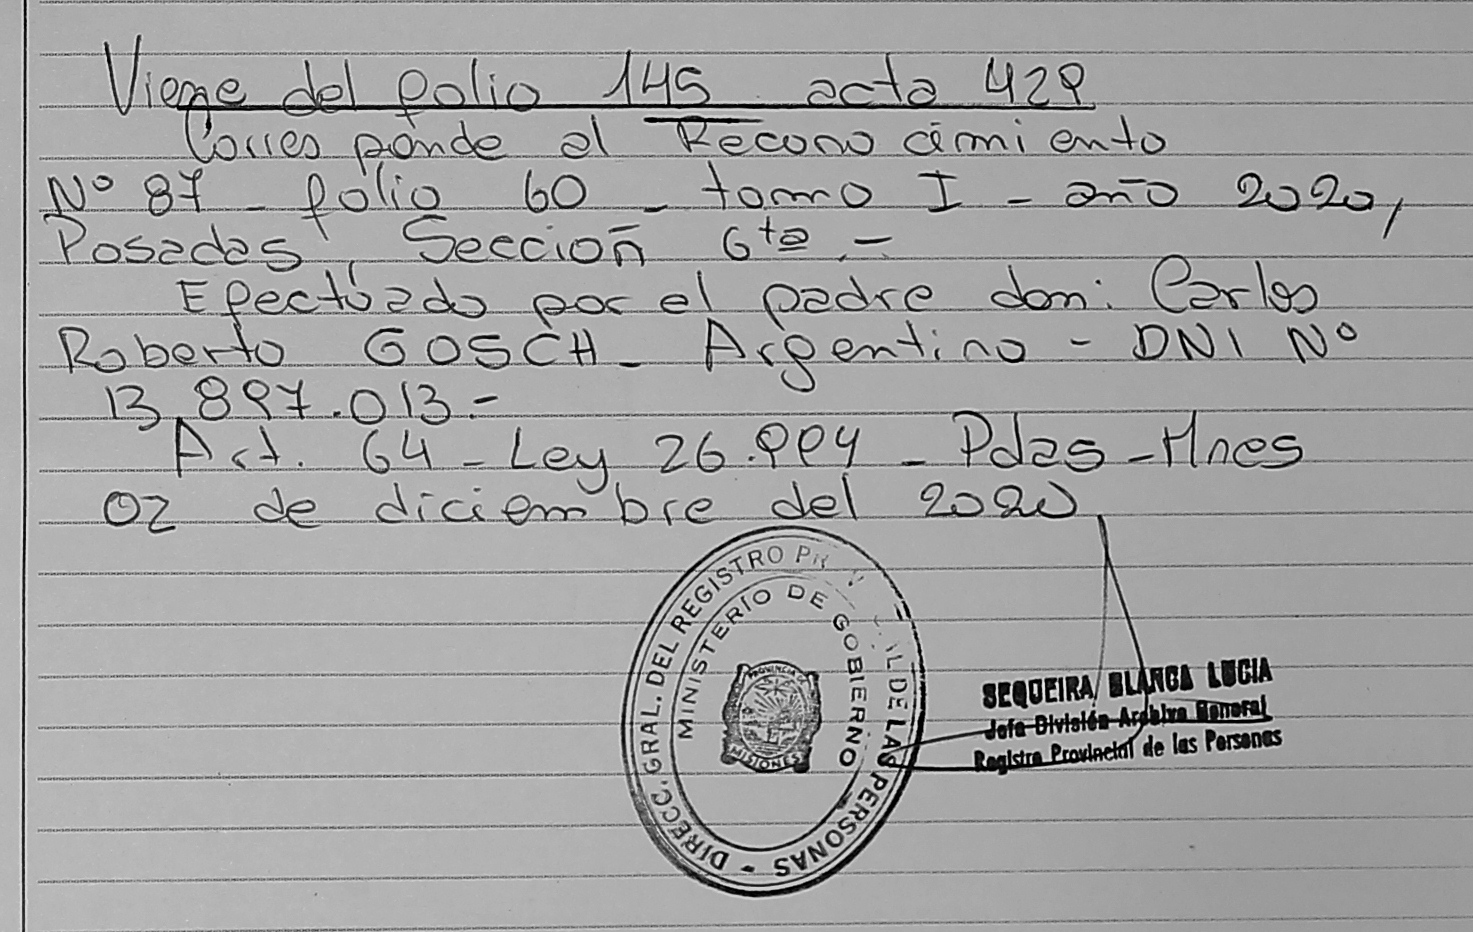 Viene del folio 145 acta 429
Corresponde al Reconocimiento
Nº 87 - folio 60 - tomo I - año 2020,
Posadas, Sección 6ta.-
Efectuado por el padre don: Carlos
Roberto GOSCH - Argentino - DNI Nº
13.897.013.-
Art. 64 - Ley 26.994 - Pdas - Mnes
02 de diciembre del 2020
DIRECC. GRAL. DEL REGISTRO DE LAS PERSONAS -
MINISTERIO DE GOBIERNO
PROVINCIA DE
MISIONES
SEQUEIRA, BLANCA LUCIA
Jefa División Archivo General
Registro Provincial de las Personas